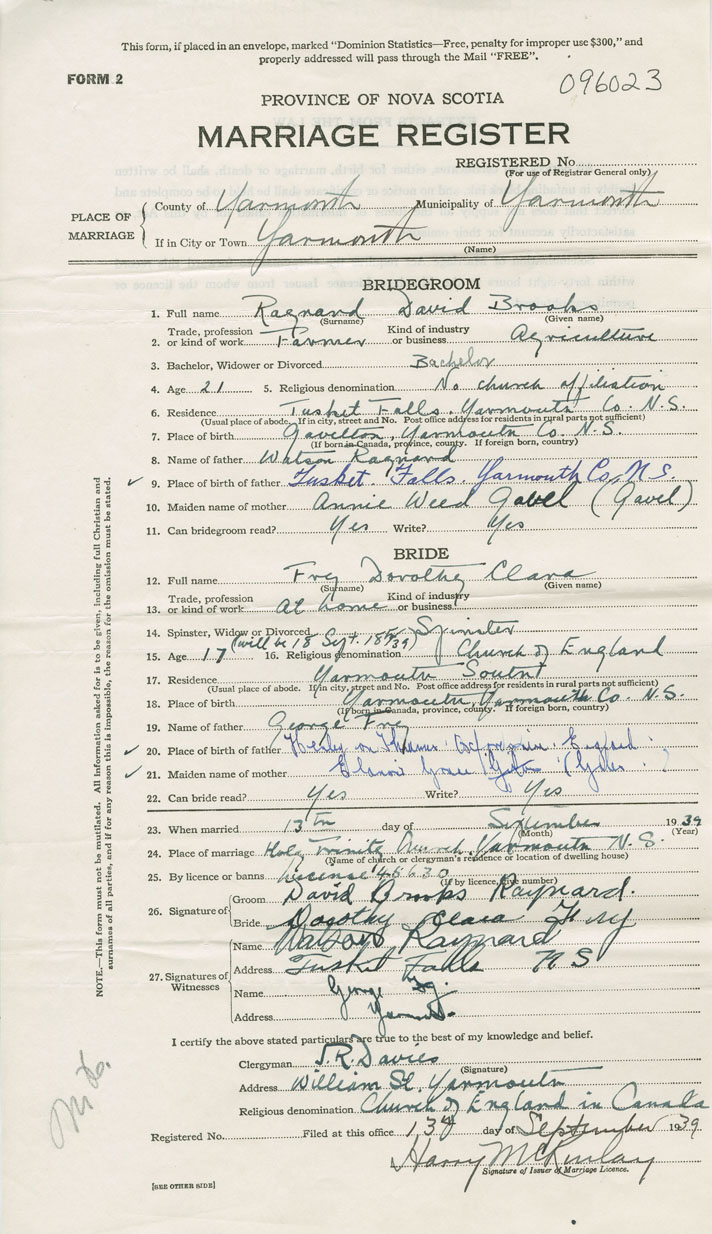 This form, if placed in an envelope, marked "Dominion Statistics—Free, penalty for improper use $300," and
properly addressed will pass through the Mail "FREE".
FORM 2
096023
PROVINCE OF NOVA SCOTIA
MARRIAGE REGISTER
REGISTERED No.
(For use of Registrar General only)
PLACE OF MARRIAGE
County of Yarmouth Municipality of Yarmouth
If in City or Town Yarmouth
(Name)
BRIDEGROOM
1. Full name Raynard David Brooks
(Surname) (Given name)
2. Trade, profession or kind of work Farmer Kind of industry or business Agriculture
3. Bachelor, Widower or Divorced Bachelor
4. Age 21 5. Religious denomination No church affiliation
6. Residence Tusket Falls, Yarmouth Co. N.S.
(Usual place of abode. If in city, street and No. Post office address for residents in rural parts not sufficient)
7. Place of birth Gavelton, Yarmouth Co. N.S.
(If born in Canada, province, county. If foreign born, country)
8. Name of father Watson Raynard
9. Place of birth of father Tusket Falls Yarmouth Co. N.S.
10. Maiden name of mother Annie Weed Gavel (Gavel)
11. Can bridegroom read? Yes Write? Yes
BRIDE
12. Full name Fry Dorothy Clara
(Surname) (Given name)
13. Trade, profession or kind of work At home Kind of industry or business
14. Spinster, Widow or Divorced Spinster
(will be 18 Sept. 18th/39)
15. Age 17 16. Religious denomination Church of England
17. Residence Yarmouth South
(Usual place of abode. If in city, street and No. Post office address for residents in rural parts not sufficient)
18. Place of birth Yarmouth, Yarmouth Co. N.S.
(If born in Canada, province, county. If foreign born, country)
19. Name of father George Fry
20. Place of birth of father Henley on Thames England
21. Maiden name of mother Grace
22. Can bride read? Yes Write? Yes
23. When married 13th day of September 1939
(Month) (Year)
24. Place of marriage Holy Trinity Church, Yarmouth N.S.
(Name of church or clergyman's residence or location of dwelling house)
25. By licence or banns License 45630
(If by licence, give number)
26. Signature of
Groom David Brooks Raynard.
Bride Dorothy Clara Fry
27. Signatures of Witnesses
Name Watson Raynard
Address Tusket Falls N S
Name George Fry
Address
I certify the above stated particulars are true to the best of my knowledge and belief.
Clergyman J.R. Davies
(Signature)
Address William St. Yarmouth
Religious denomination Church of England in Canada
Registered No. Filed at this office 13th day of September 1939
Harry McKinlay
Signature of Issuer of Marriage Licence.
[SEE OTHER SIDE]
NOTE.—This form must not be mutilated. All information asked for is to be given, including full Christian and
surnames of all parties, and if for any reason this is impossible, the reason for the omission must be stated.